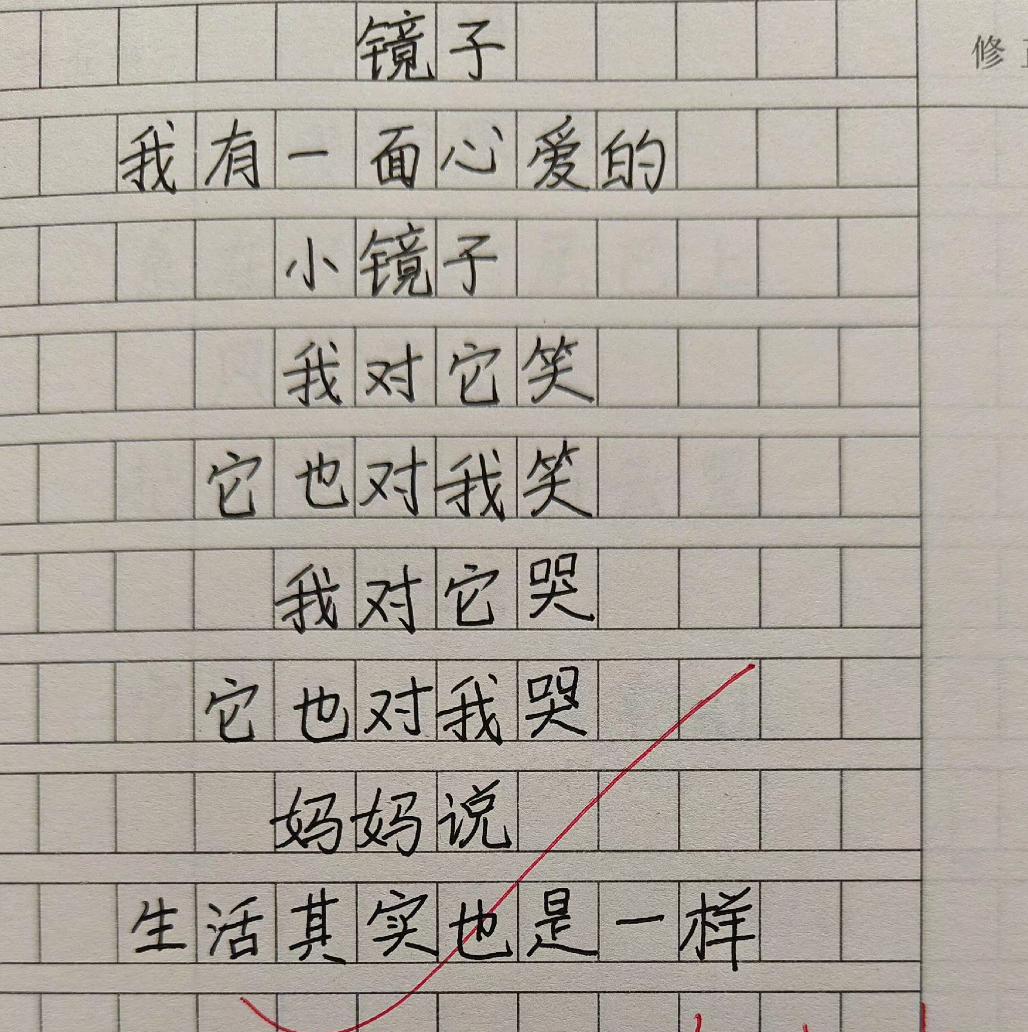 镜子
修
我有一面心爱的
小镜子
我对它笑
它也对我笑
我对它哭
它也对我哭
妈妈说
生活其实也是一样